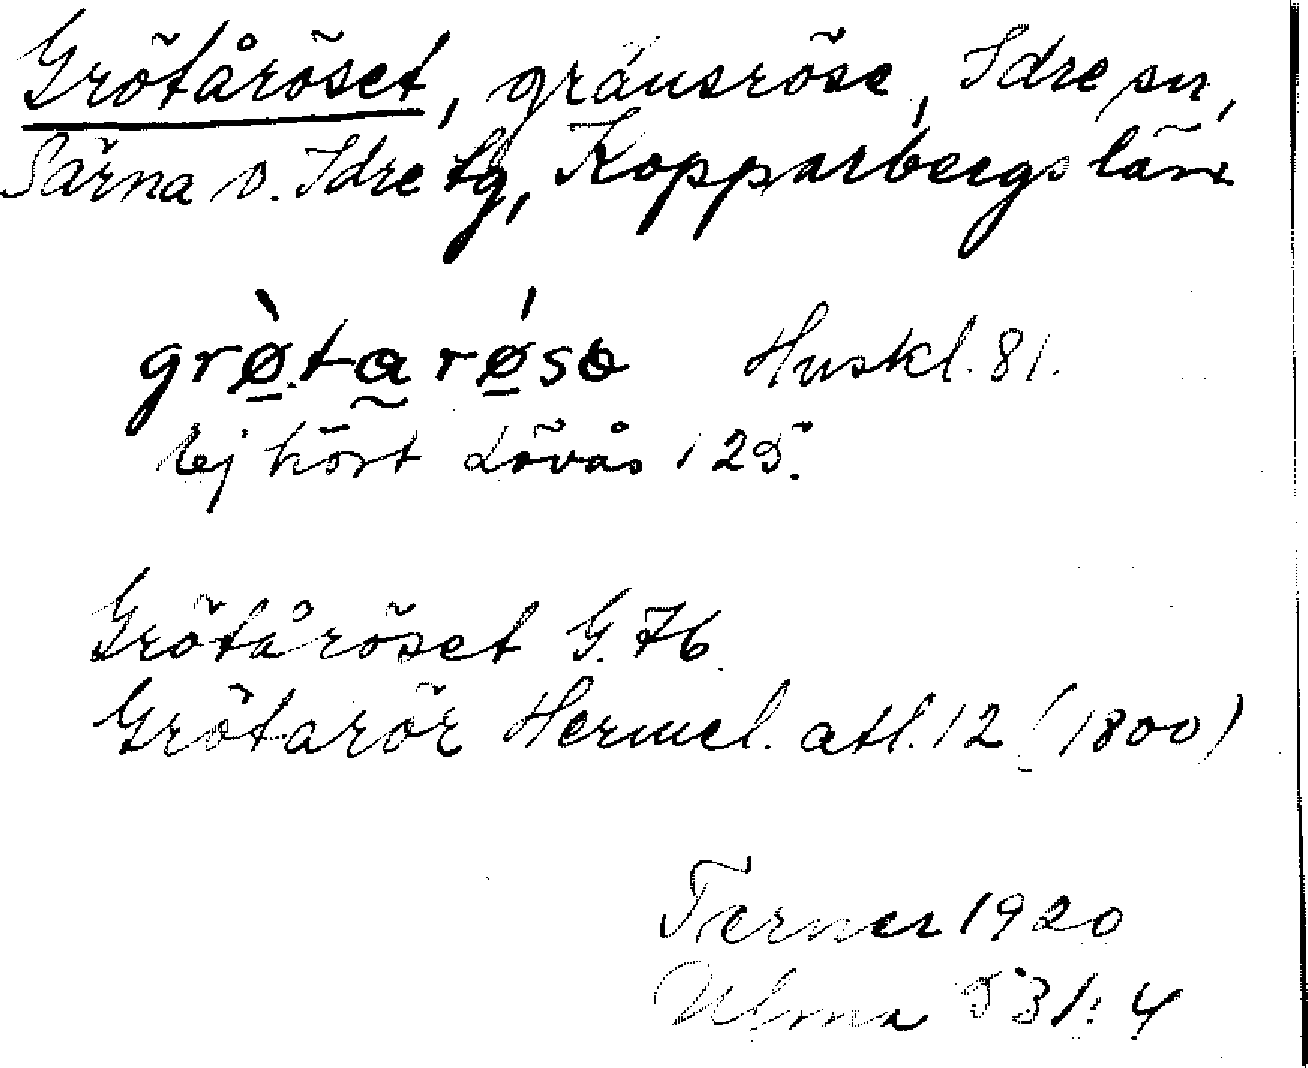 Grötåröset, gränsröse, Idre sn,
Särna o. Idre tg, Kopparbergs län
grø̀.ta rǿsə Huskl. 81.
Ej hört Lövås 125.
Grötåröset G. 76.
Grötarör Hermel. atl. 12 (1800)
Terner 1920
Ulma 531:4